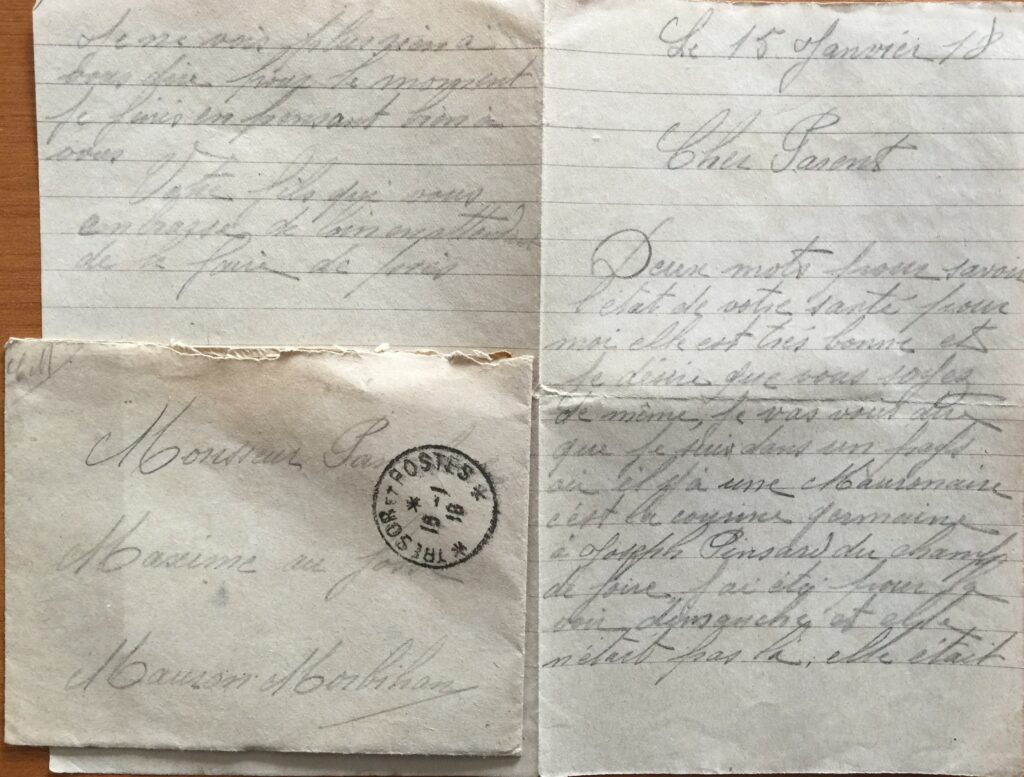 Le 15 Janvier 18
Cher Parent
Deux mots pour savoir
l'état de votre santé pour
moi elle est trés bonne et
je désire que vous soyez
de même, je vas vous dire
que je suis dans un pays
où il y a une Mauronaise
c'est la cousine germaine
à Joseph Pinsard du champ
de foire j'ai été pour la
voir dimanche et elle
n'était pas là, elle était
Je ne vois plus rien à
vous dire pour le moment
je finis en pensant bien à
vous
Votre fils qui vous
embrasse de loin en attendant
de le faire de près
F.M
Monsieur
Maxime au
Mauron Morbihan
TRESOR ET POSTES
16 - 1
18